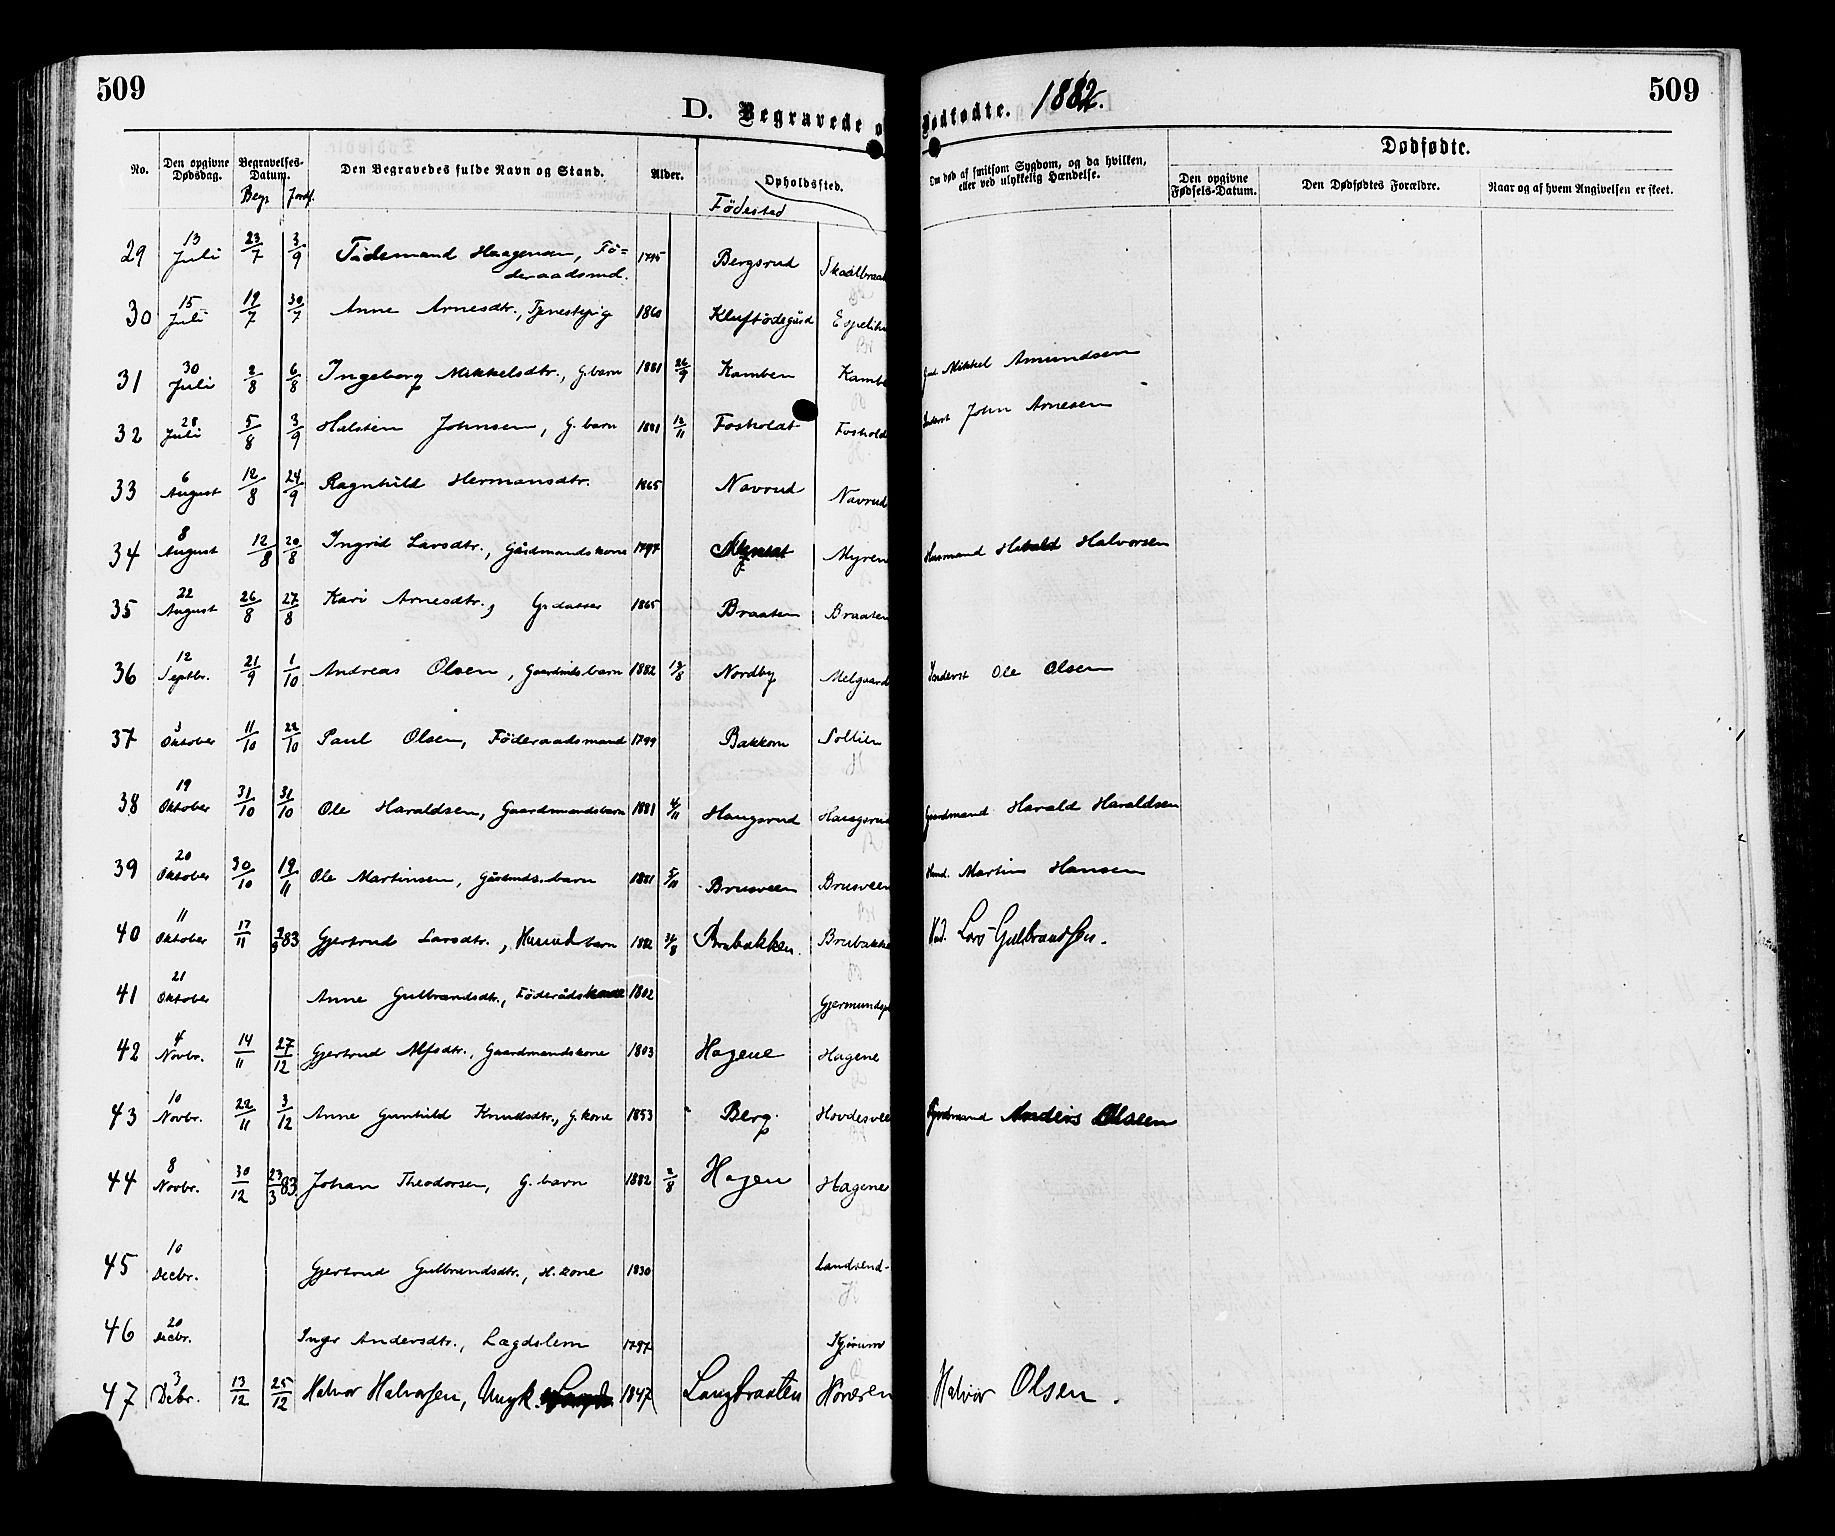 509
509
D. Begravede o
Dødfødte. 1882.
No.
Den opgivne Dødsdag.
Begravelses-Datum.
Begr. Jordf.
Den Begravedes fulde Navn og Stand.
Alder.
Födested
Opholdssted.
Om død af smitsom Sygdom, og da hvilken, eller ved ulykkelig Hændelse.
Dødfødte.
Den opgivne Fødsels-Datum.
Den Dødfødtes Forældre.
Naar og af hvem Angivelsen er skeet.
29 13 Juli 23/7 3/9 Tidemand Haagensen, Fö=deraadsmd. 1795 Bergsrud Skaalbraat
30 15 Juli 19/7 30/7 Anne Arnesdtr., Tjenestepig 1860 Kluftödegård
31 30 Juli 2/8 6/8 Ingeborg Mikkelsdtr., G.barn 1881 26/9 Kamben Kambe Mikkel Amundsen
32 28 Juli 5/8 3/9 Halsten Johnsen, G.barn 1881 Fosholdt Foshold John Arnesen
33 6 August 12/8 24/9 Ragnhild Hermansdtr. 1865 Navrud Navrud
34 8 August 12/8 20/8 Ingrid Larsdtr., Gårdmandskone 1797 Myren Husmand Halvorsen
35 22 August 26/8 27/8 Kari Arnesdtr., G.datter 1865 Braaten Braaten
36 12 Septbr. 21/9 1/10 Andreas Olsen, Gaardmdsbarn 1882 12/8 Nordby Melgaard Inderst Ole Olsen
37 3 Oktober 11/10 22/10 Paul Olsen, Föderaadsmand 1799 Bakkom Sollien
38 19 Oktober 31/10 31/10 Ole Haraldsen, Gaardmandsbarn 1881 4/11 Haugsrud Haugsrud Gaardmand Harald Haraldsen
39 20 Oktober 30/10 19/11 Ole Martinsen, Gårdmds.barn 1881 5/11 Brusveen Brusveen Martin Hansen
40 11 Oktober 17/11 83 Gjertrud Larsdtr., Husmdbarn 1882 Brubakken. Brubakke Lars Gulbrandsen.
41 21 Oktober Anne Gulbrandsdtr., Föderådskone 1802
42 4 Novbr. 14/11 27/12 Gjertrud Alfsdtr., Gaardmandskone 1803 Hagene Hagene
43 10 Novbr. 22/11 3/12 Anne Gunhild Knudsdtr., G.kone 1853 Berg. Hovdesvee Gårdmand Anders Olsen
44 8 Novbr. 30/12 23/3 83. Johan Theodorsen, G.barn 1882 2/8 Hagen Hagene
45 10 Decbr. Gjertrud Gulbrandsdtr., H.kone 1830 Landsend-
46 20 Decbr. Inger Andersdtr., Lægdslem 1797
47 3 Decbr. 13/12 25/12 Halvor Halvorsen, Ungk. 1847 Langbraaten Halvor Olsen.